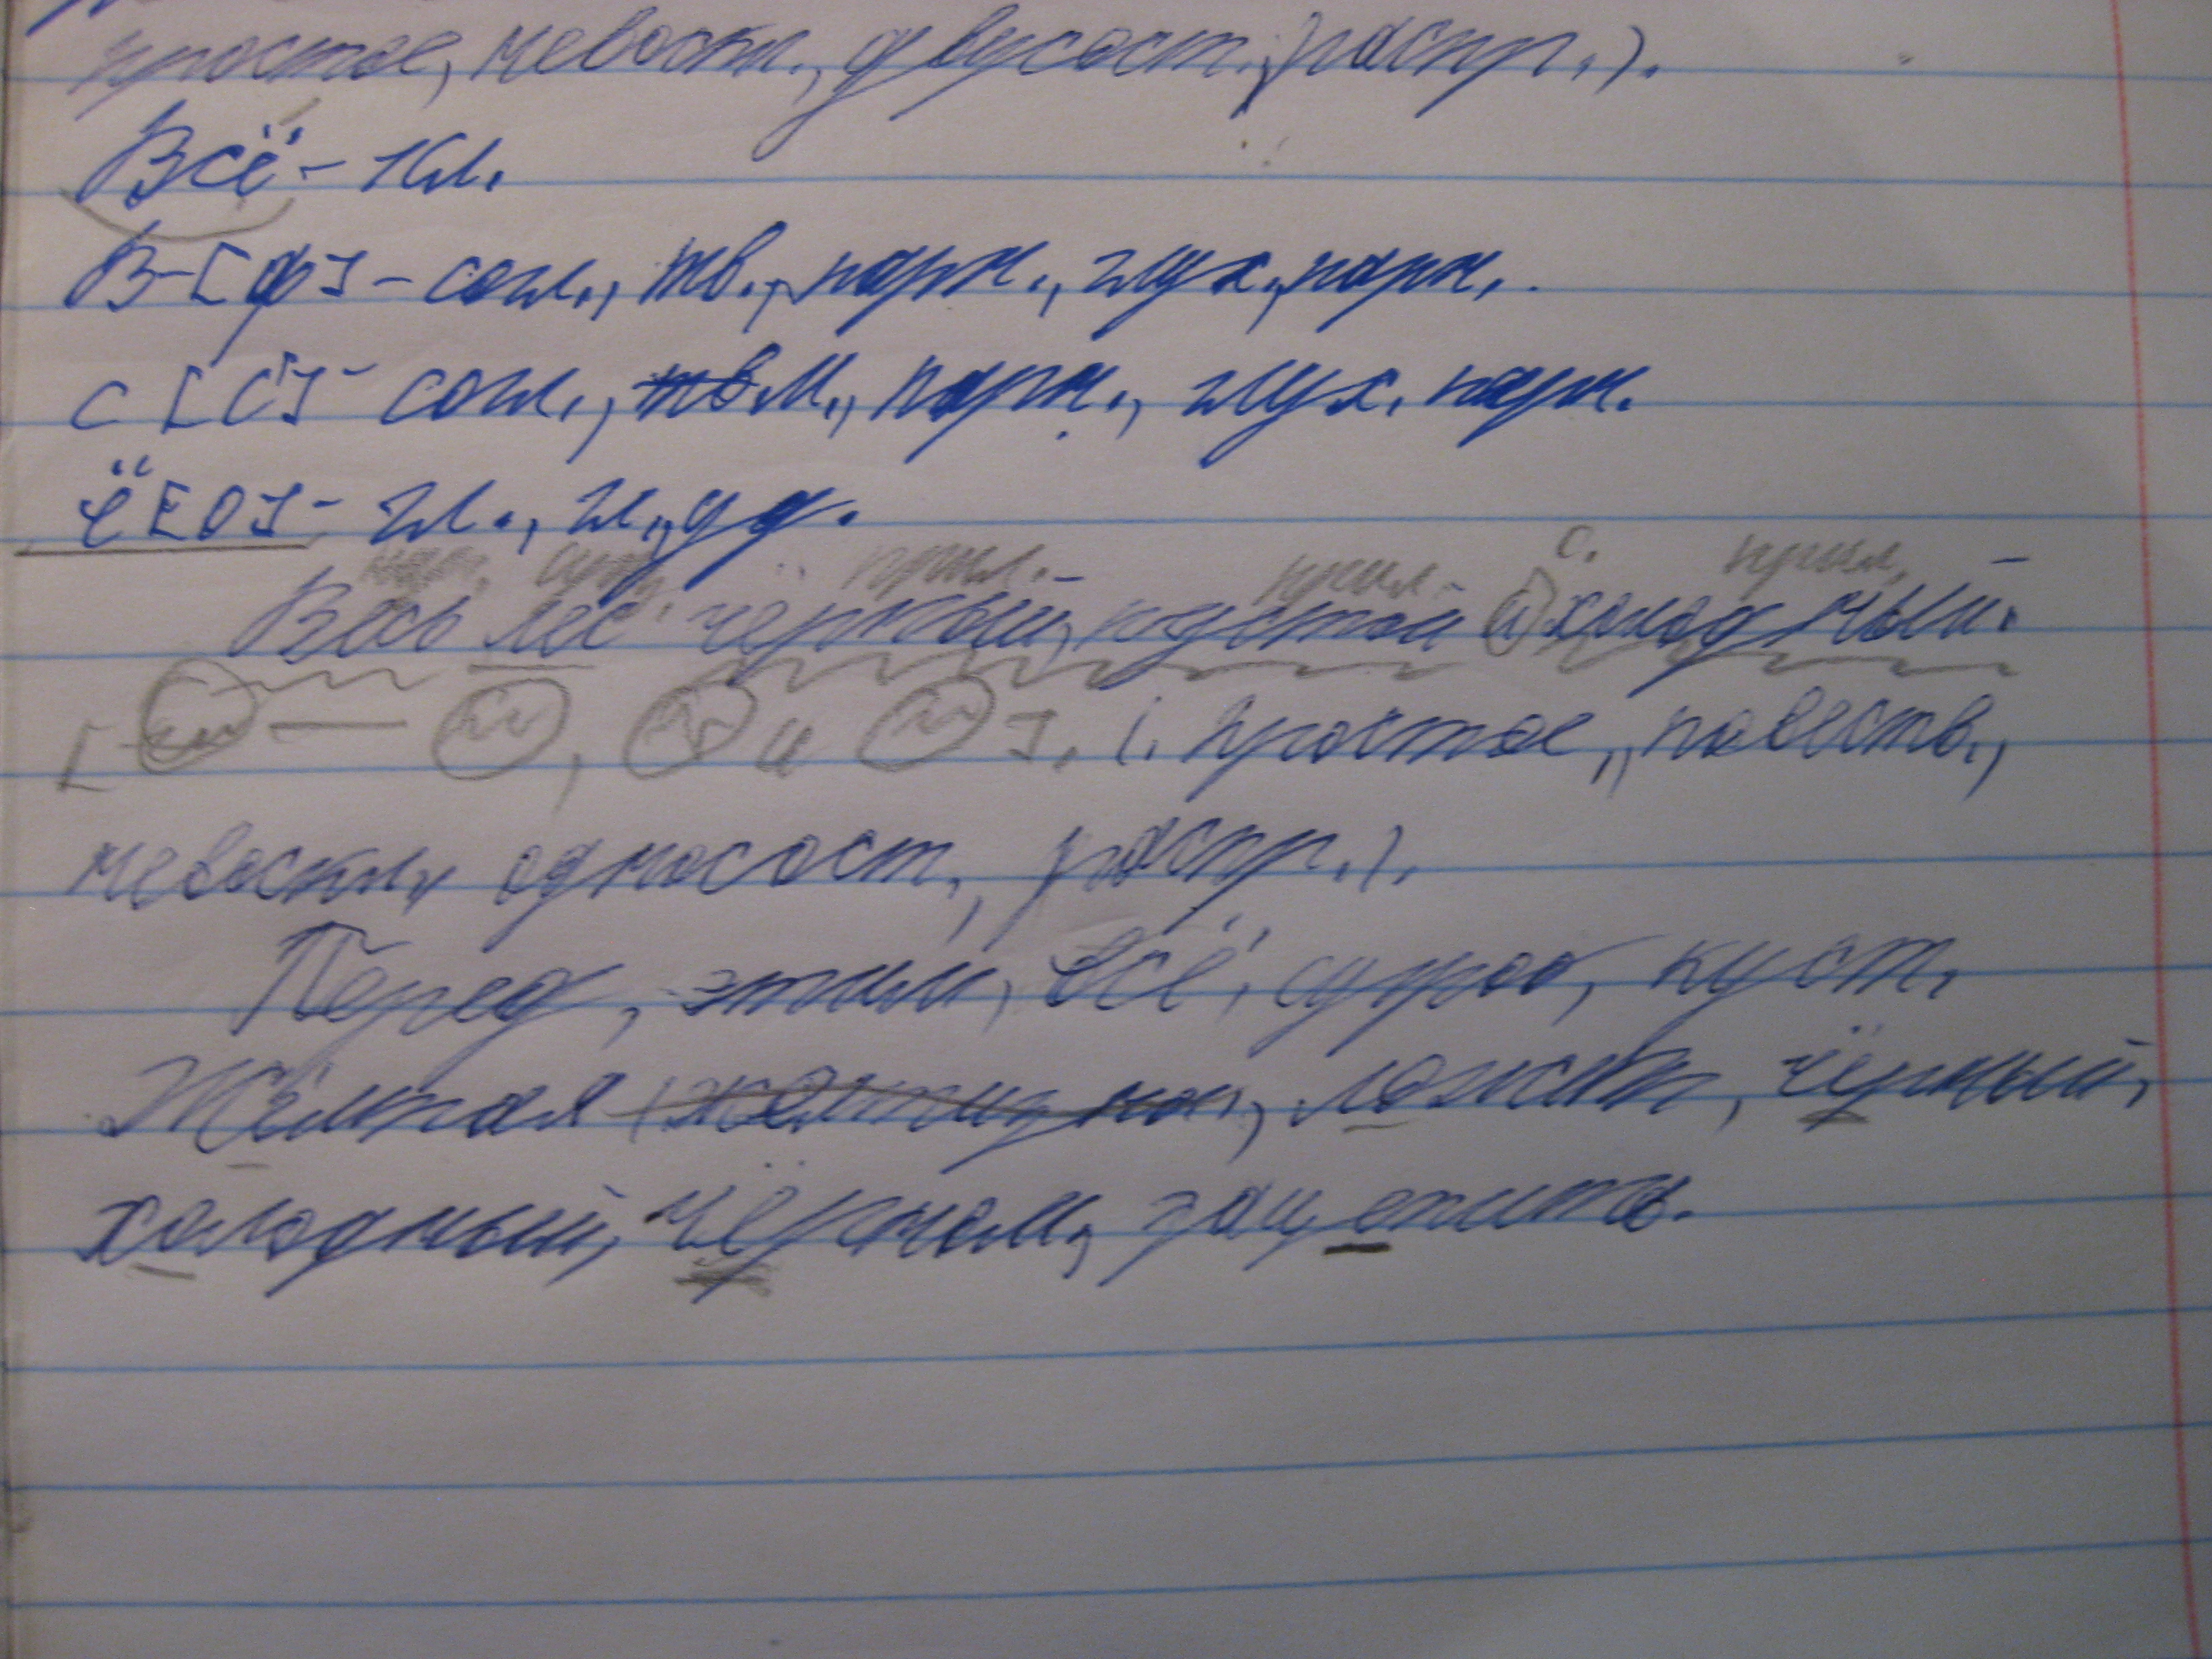 простое, невоскл., двусост., распр.).
Всё - 1сл.
В-[ф]-согл., тв., парн., глух., парн.
с [с']- согл., м., парн., глух. парн.
ё [о]- гл., гл., уд.
сущ. прил. прил. с. прил.
Весь лес чёрный, пустой и холодный.
и ]. (простое, повеств.,
невоскл., односост., распр.).
Перед, этим, всё, сугроб, куст.
Жёлтая, чёрный,
холодный, чёрном, зацепить.